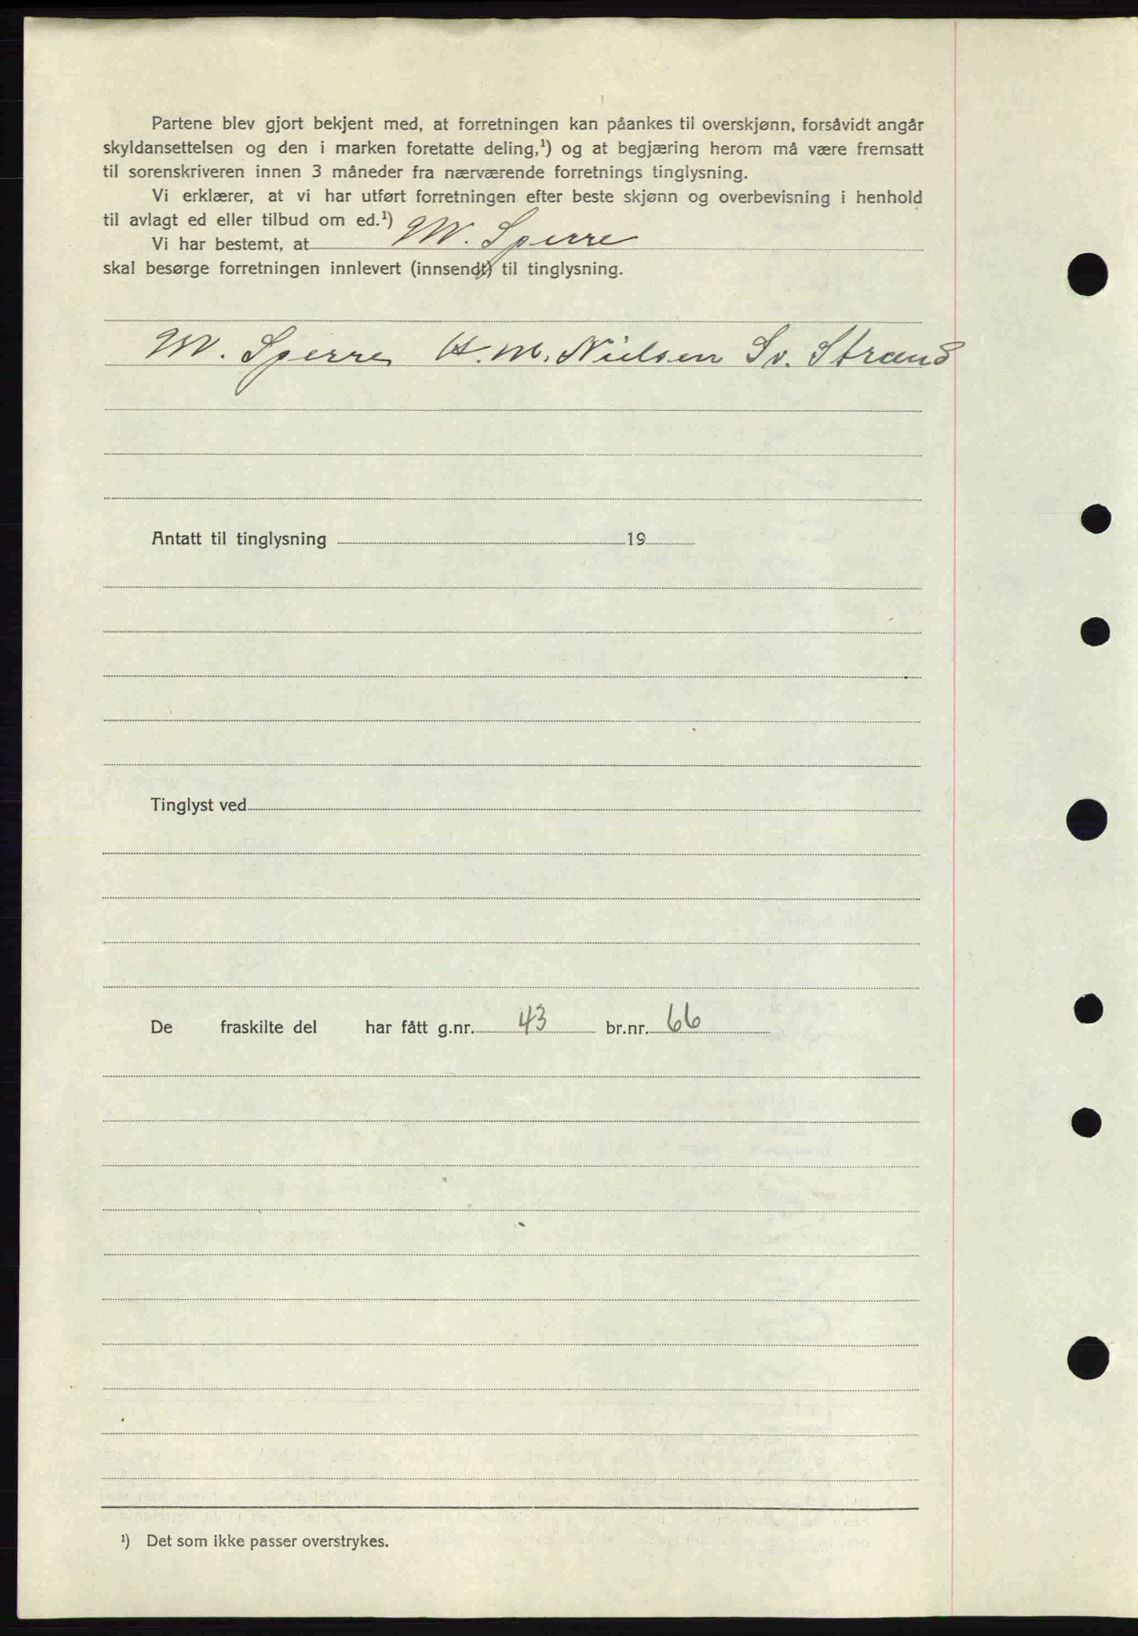 Partene blev gjort bekjent med, at forretningen kan påankes til overskjønn, forsåvidt angår
skyldansettelsen og den i marken foretatte deling,¹) og at begjæring herom må være fremsatt
til sorenskriveren innen 3 måneder fra nærværende forretnings tinglysning.
Vi erklærer, at vi har utført forretningen efter beste skjønn og overbevisning i henhold
til avlagt ed eller tilbud om ed.¹)
Vi har bestemt, at M. Sperre
skal besørge forretningen innlevert (innsendt) til tinglysning.
M. Sperre H. M. Nielsen Sv. Strand
Antatt til tinglysning 19
Tinglyst ved
De fraskilte del har fått g.nr. 43 br.nr. 66
¹) Det som ikke passer overstrykes.